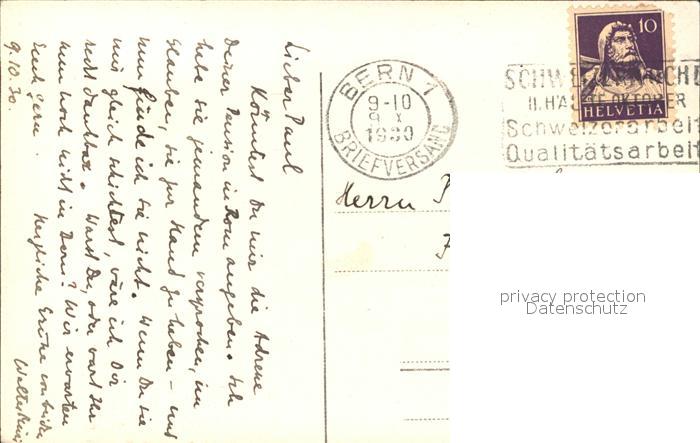 Lieber Paul
Könntest Du mir die Adresse
Deiner Pension in Rom angeben. Ich
habe sie jemandem versprochen, im
Glauben, sie zur Hand zu haben – und
nun finde ich sie nicht. Wenn Du sie
mir gleich schicktest, wäre ich Dir
recht dankbar. Warst Du, oder wart Ihr
nun noch nicht in Bern? Wir erwarten
Euch gern. Herzliche Grüsse von beiden
9.10.30.
BERN 1
9-10
9 X
1930
BRIEFVERSAND
HELVETIA
10
SCHWEIZERWOCHE
II. HÄLFTE OKTOBER
Schweizerarbeit
Qualitätsarbeit
Herrn
privacy protection
Datenschutz